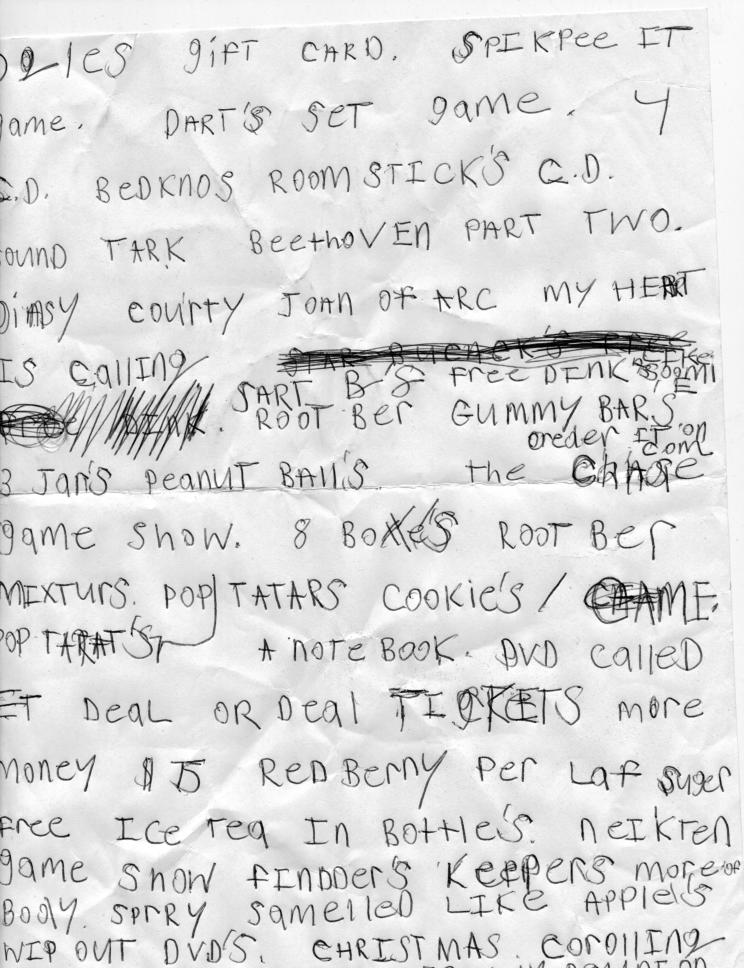 GIFT CARD. SPIKPEE IT
game. DART'S SET game. 4
C.D. BEDKNOS ROOMSTICK'S C.D.
OUND TARK BeethoVEN PART TWO.
COURTY JOAN OF ARC MY HERT
IS CalliNg
SART B'S FREE DINK
ROOT Ber GUMMY BAR'S
oreder IT on
com
3 Jar's PeaNUT BAll'S the CHASE
game SHOW. 8 BOXE'S ROOT Ber
MIXTURS. POP TATARS COOKIE'S / GAME.
POP TARAT'S A NOTE BOOK. DVD CAllED
ET DEAL OR DEAl TICKETS more
MONEY $ 75 RED BERRY PER LAF SUGER
FREE ICE TEA IN BOTTLE'S. NEIKTEN
game SHOW FINDDER'S KEEPERS more OF
BODY. SPRRY SAMELLED LIKE APPLE'S
WIP OUT DVD'S. CHRISTMAS COROLLING